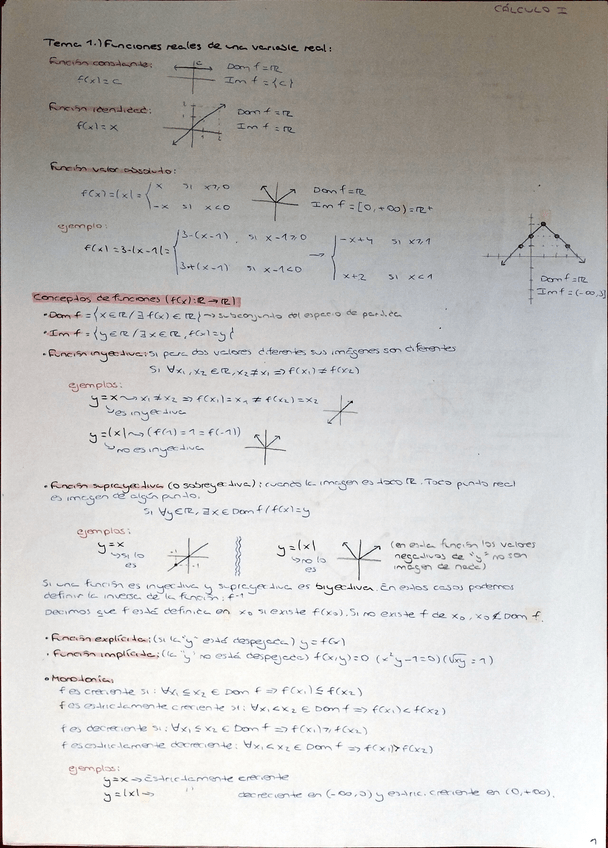 CÁLCULO I
Tema 1.) Funciones reales de una variable real:
Función constante:
f(x) = c
c
Dom f = ℝ
Im f = {c}
Función identidad:
f(x) = x
Dom f = ℝ
Im f = ℝ
Función valor absoluto:
f(x) = |x| = { x si x ≥ 0
-x si x < 0
Dom f = ℝ
Im f = [0, +∞) = ℝ⁺
ejemplo:
f(x) = 3-|x-1| = { 3-(x-1), si x-1 ≥ 0 → { -x+4 si x ≥ 1
3+(x-1) si x-1 < 0 x+2 si x < 1
Dom f = ℝ
Im f = (-∞, 3]
Conceptos de funciones (f(x): ℝ → ℝ)
• Dom f = {x ∈ ℝ / ∃ f(x) ∈ ℝ} → subconjunto del espacio de partida
• Im f = {y ∈ ℝ / ∃ x ∈ ℝ, f(x) = y}
• Función inyectiva: si para dos valores diferentes sus imágenes son diferentes
Si ∀x₁, x₂ ∈ ℝ, x₂ ≠ x₁ ⇒ f(x₁) ≠ f(x₂)
ejemplos:
y = x ⤳ x₁ ≠ x₂ ⇒ f(x₁) = x₁ ≠ f(x₂) = x₂
↳ es inyectiva
y = |x| ⤳ (f(1) = 1 = f(-1))
↳ no es inyectiva
• Función suprayectiva (o sobreyectiva): cuando la imagen es todo ℝ. Todo punto real
es imagen de algún punto.
Si ∀y ∈ ℝ, ∃ x ∈ Dom f / f(x) = y
ejemplos:
y = x
↳ si lo
es
y = |x|
↳ no lo
es
(en esta función los valores
negativos de "y" no son
imagen de nada)
Si una función es inyectiva y suprayectiva es biyectiva. En estos casos podemos
definir la inversa de la función: f⁻¹
Decimos que f está definida en x₀ si existe f(x₀). Si no existe f de x₀, x₀ ∉ Dom f.
• Función explícita: (si la "y" está despejada) y = f(x)
• Función implícita: (la "y" no está despejada) f(x,y) = 0 (x²y-1=0) (√xy = 1)
• Monotonía:
f es creciente si: ∀x₁ ≤ x₂ ∈ Dom f ⇒ f(x₁) ≤ f(x₂)
f es estrictamente creciente si: ∀x₁ < x₂ ∈ Dom f ⇒ f(x₁) < f(x₂)
f es decreciente si: ∀x₁ ≤ x₂ ∈ Dom f ⇒ f(x₁) ≥ f(x₂)
f es estrictamente decreciente: ∀x₁ < x₂ ∈ Dom f ⇒ f(x₁) > f(x₂)
ejemplos:
y = x → Estrictamente creciente
y = |x| → '' decreciente en (-∞, 0) y estric. creciente en (0, +∞).
1